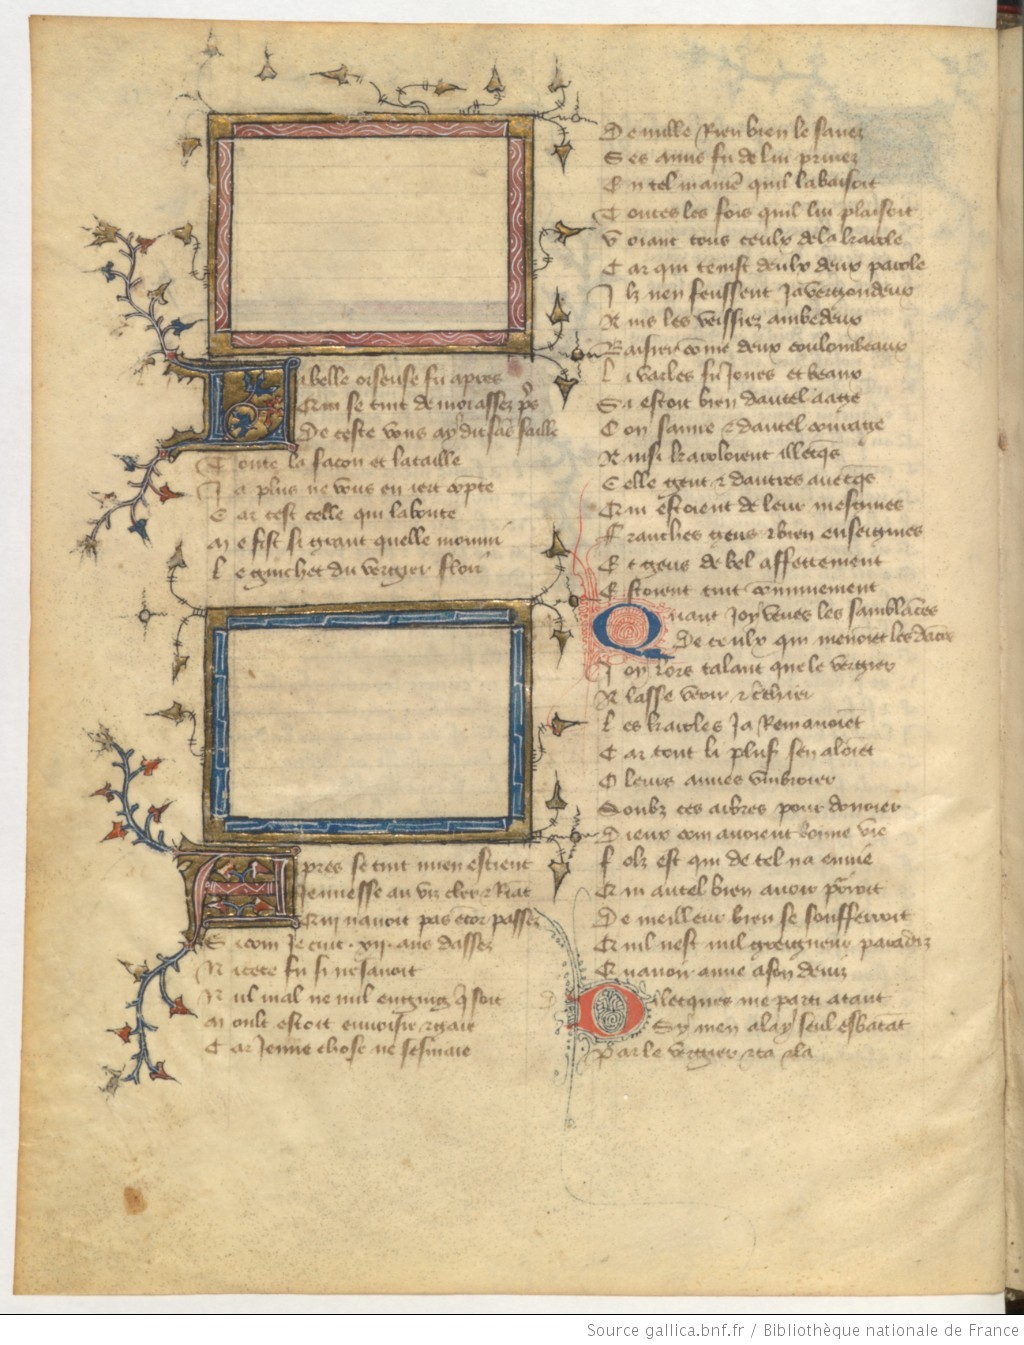 La belle oiseuse fu apres
Qui se tint de moi assez pres
De ceste vous ay dit sans faille
Toute la facon et la taille
Ja plus ne vous en iert compte
Car cest celle qui la bonte
Me fist si grant quelle mouvri
Le guichet du vergier flori
Apres se tint mien escient
Jeunesse au viz cler et Riant
Qui navoit pas encor passez
Si com Je cuit .xij. ans dassez
Nicete fu si ne savoit
Nul mal ne nul enging qi soit
Moult estoit envoisie et gaie
Car Jeune chose ne sesmaie
De mille Rien bien le savez
Ses amis fu de lui privez
En tel maniere quil la baisoit
Toutes les fois quil lui plaisoit
Voiant tous ceulx de la karole
Car qui tenist deulx deux parole
Ilz nen feussent Ja vergondeux
Ains les veissiez ambedeux
Baisier comme deux coulombeaux
Li varles fu Jones et beaux
Si estoit bien dautel aage
Con samie et dautel courage
Ainsi karoloient illecques
Celle gent et dautres avecques
Qui estoient de leur mesgnies
Franches gens et bien enseignes
Et gens de bel affettement
Estoient tuit communement
Quant Joy veues les samblances
De ceulx qui menoient les dances
Joy lors talant que le vergier
Alasse veoir et cerchier
Les karoles Ja Remanoient
Car tout li plusi sen aloient
O leurs amies umbroier
Soubz ces arbres pour donoier
Dieux com avoient bonne vie
Folz est qui de tel na envie
Qui autel bien avoir pourroit
De meilleur bien se soufferroit
Quil nest nul greigneur paradiz
Quavoir amie a son deviz
Dilecques me parti atant
Sy men alay seul esbatant
Par le vergier et ca et la
Source gallica.bnf.fr / Bibliothèque nationale de France